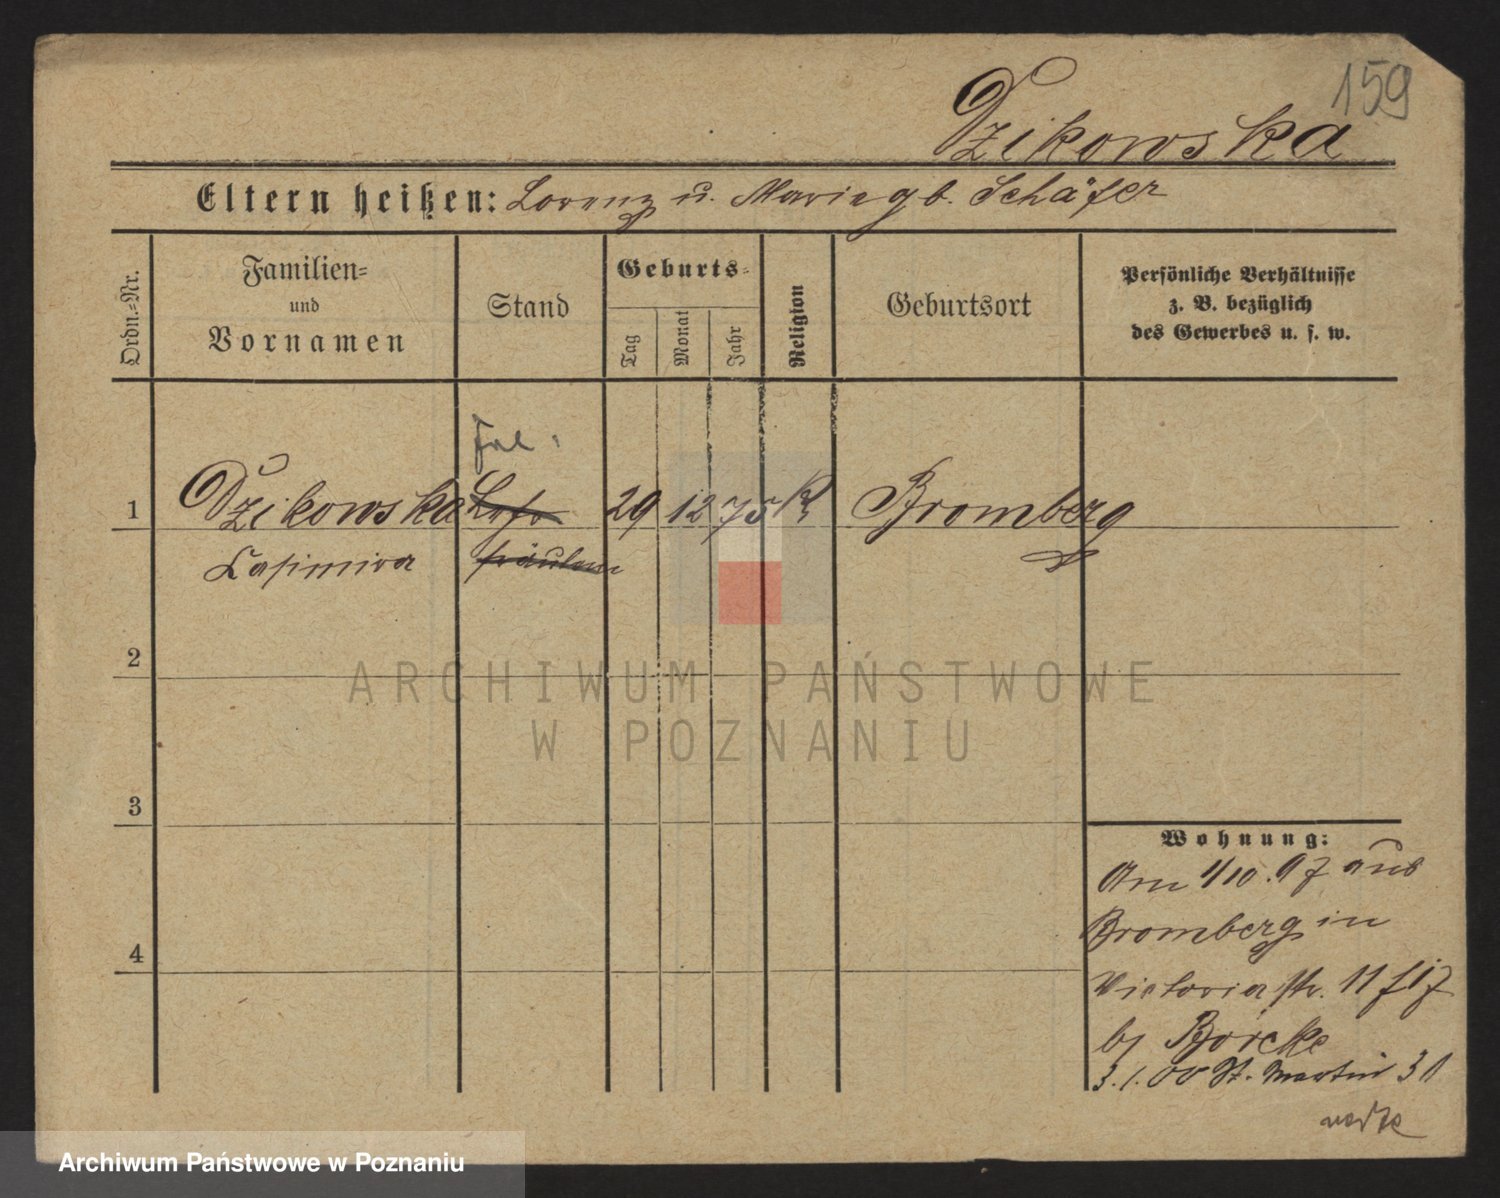 159
Dzikowska
Eltern heißen: Lorenz u. Marie gb. Schäfer
Ordn.-Nr.
Familien-
und
Vornamen
Stand
Geburts-
Tag
Monat
Jahr
Religion
Geburtsort
Persönliche Verhältnisse
z. B. bezüglich
des Gewerbes u. s. w.
1 Dzikowska 29 12 75 K Bromberg
Casimira fräulein
2
ARCHIWUM PAŃSTWOWE
W POZNANIU
3
4
Wohnung:
Am 1/10. 97 aus
Bromberg in
Victoria str. 11
by Borcke
3.1.00 St. Martin 31
Archiwum Państwowe w Poznaniu